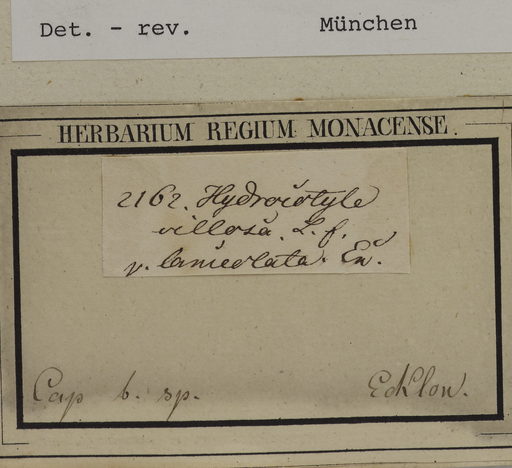 Det. - rev. München
HERBARIUM REGIUM MONACENSE.
2162. Hydrocotyle
villosa. L. f.
v. lanceolata. En.
Cap b. sp. Ecklon.